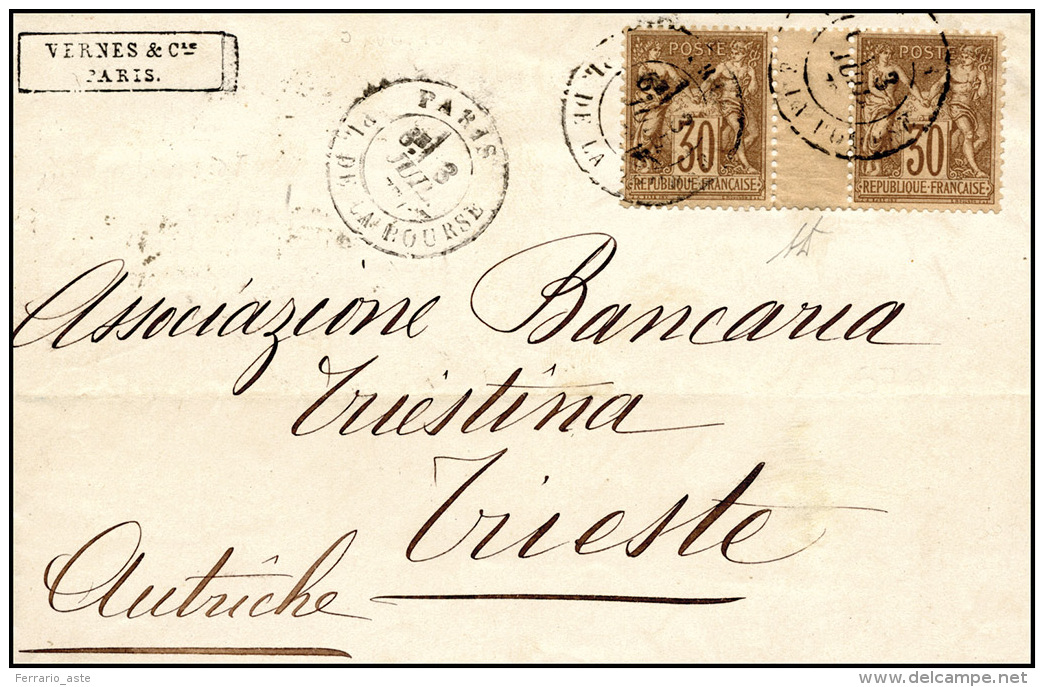 VERNES & Cie
PARIS.
PARIS
3
JUIL
PL. DE LA BOURSE
POSTE
30
REPUBLIQUE FRANÇAISE
POSTE
30
REPUBLIQUE FRANÇAISE
DE LA
3
Associazione Bancaria
Triestina
Trieste
Autriche
Ferrario_aste
delcampe.net